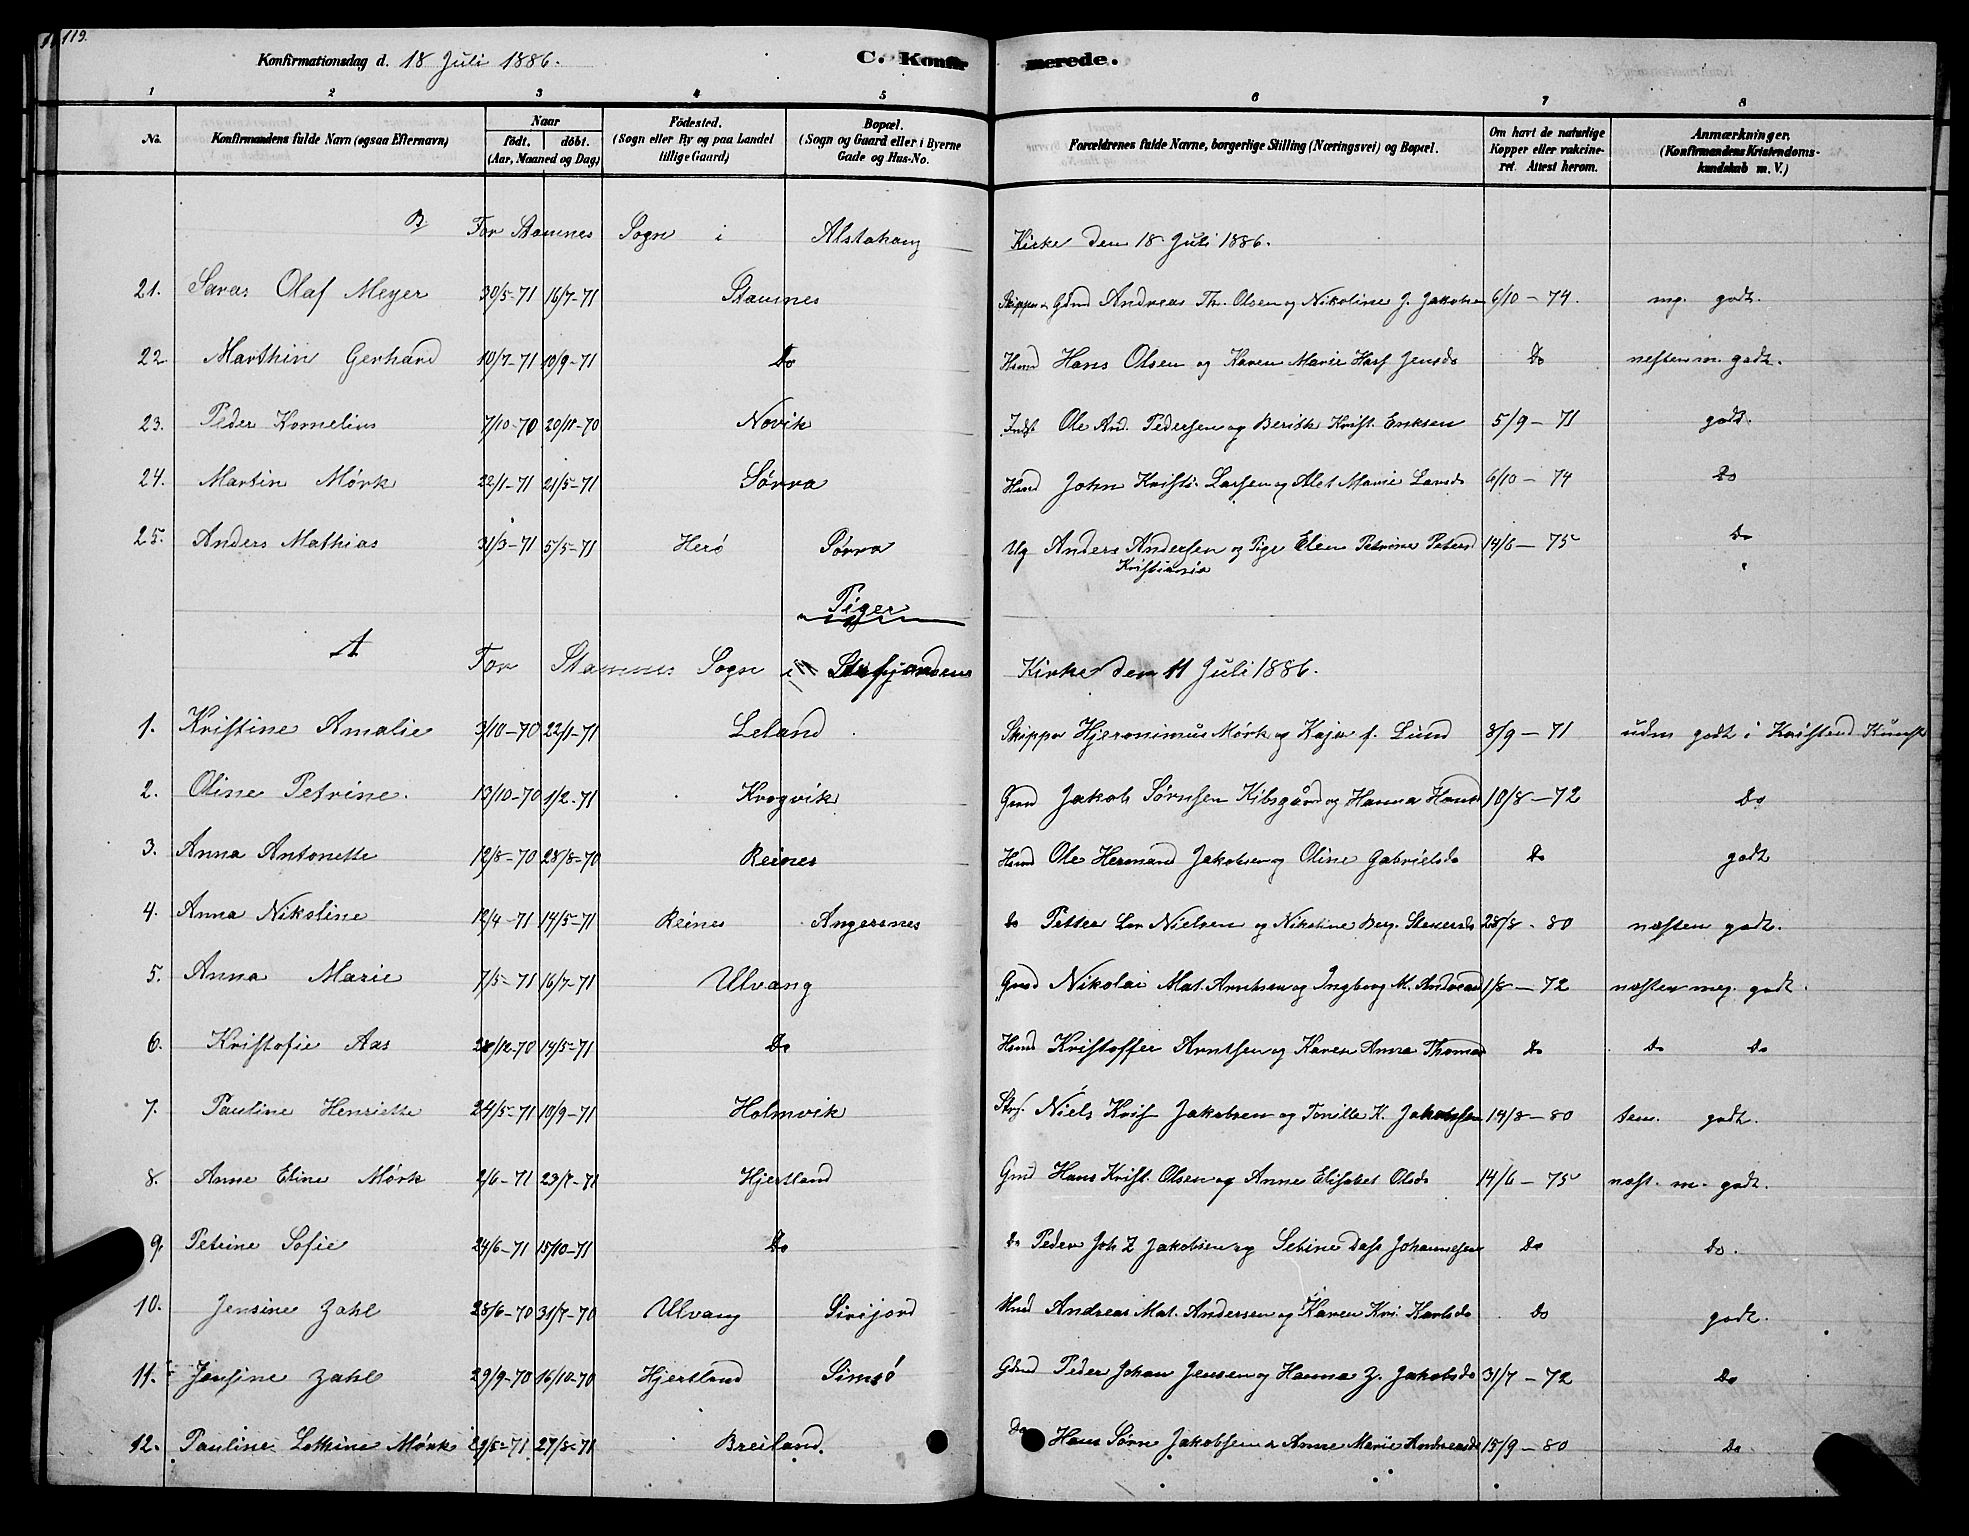 119.
Konfirmationsdag d. 18 Juli 1886. C. Konfirmerede.
1 2 3 4 5 6 7 8
No. Konfirmandens fulde Navn (ogsaa Efternavn) Naar født. døbt. (Aar, Maaned og Dag) Fødested. (Sogn eller By og paa Landet tillige Gaard) Bopæl. (Sogn og Gaard eller i Byerne Gade og Hus-No. Forældrenes fulde Navne, borgerlige Stilling (Næringsvei) og Bopæl. Om havt de naturlige Kopper eller vakcineret. Attest herom. Anmærkninger. (Konfirmandens Kristendomskundskab m. V.)
B. For Stamnes Sogn i Alstahaug Kirke den 18 Juli 1886.
21. Olaf Meyer 30/5-71 16/7-71 Stamnes Skipper Gmd Andreas Th. Olsen og Nikoline J. Jakobse 6/10-74. mg. godt.
22 Marthin Gerhard 10/7-71 10/9-71 Do Hmd Hans Olsen og Karen Marie Jensd Do nesten m. godt.
23. Peder Kornelius 7/10-70 20/11-70 Novik Indst Ole And. Pedersen og Berith Krist. Eriksen 5/9-71 godt.
24. Martin Mørk 22/1-71 21/5-71 Sørra Hmd John Krist. Larsen og Alet Marie Larsd 6/10-74 Do
25. Anders Mathias 31/3-71 5/5-71 Herø Sørra Ug Anders Andersen og Pige Elen Petrine Peters 14/6-75 Do
Kristiania
Piger
A For Stamnes Sogn i Kirke den 11 Juli 1886.
1. Kristine Amalie 3/10-70 22/1-71 Leland Skipper Hjeronimus Mørk og Kaja f. Lund 8/9-71 udm godt i Kristend Kunsk
2. Oline Petrine. 13/10-70 1/2-71 Krogvik Gmd Jakob Sørnsen Kibsgård og Hanna Hans 10/8-72 Do
3. Anna Antonette 12/8-70 28/8-70 Reines Hmd Ole Hermand Jakobsen og Oline Gabrielsd Do godt
4. Anna Nikoline 12/4-71 14/5-71 Reines Angersnes Do Petter Nielsen og Nikoline Berg. 28/8-80 næsten godt.
5. Anna Marie 7/5-71 16/7-71 Ulvang Gmd Nikolai Mat. Arntsen og Ingborg M. Andreas 1/8-72 næsten meg. godt.
6. Kristofie Aas 28/12-70 14/5-71 Do Hmd Kristoffer Arntsen og Karen Anna Thomas Do Do Do
7. Pauline Henriette 24/5-71 10/9-71 Holmvik Niels Krist Jakobsen og Tonille K. Jakobsen 14/8-80 tem. godt.
8. Anne Eline Mørk 2/6-71 23/7-71 Hjertland Gmd Hans Krist. Olsen og Anne Elisabet Olsd 14/6-75 næst. m. godt.
9. Petrine Sofie 24/6-71 15/10-71 Do Do Peder Joh Z Jakobsen og Sebine Dass Johannesen Do Do.
10. Jensine Zahl 28/6-70 31/7-70 Ulvang Sirifjord Hmd Andreas Mat. Andersen og Karen Kri. Karlsd Do godt.
11. Jensine Zahl 29/9-70 16/10-70 Hjertland Simsø Gmd Peder Johan Jensen og Hanna Z. Jakobsd 31/7-72 Do
12. Pauline Lothine Mørk 29/5-71 27/8-71 Breiland. Do Hans Sørn Jakobsen & Anne Marie Andreasd 15/9-80 Do